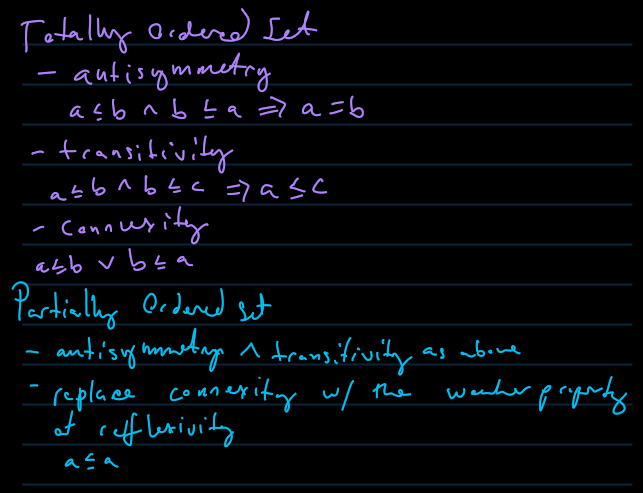 Totally Ordered Set
- antisymmetry
a ≤ b ∧ b ≤ a ⇒ a = b
- transitivity
a ≤ b ∧ b ≤ c ⇒ a ≤ c
- connexity
a ≤ b ∨ b ≤ a
Partially Ordered set
- antisymmetry ∧ transitivity as above
- replace connexity w/ the weaker property
of refflexivity
a ≤ a